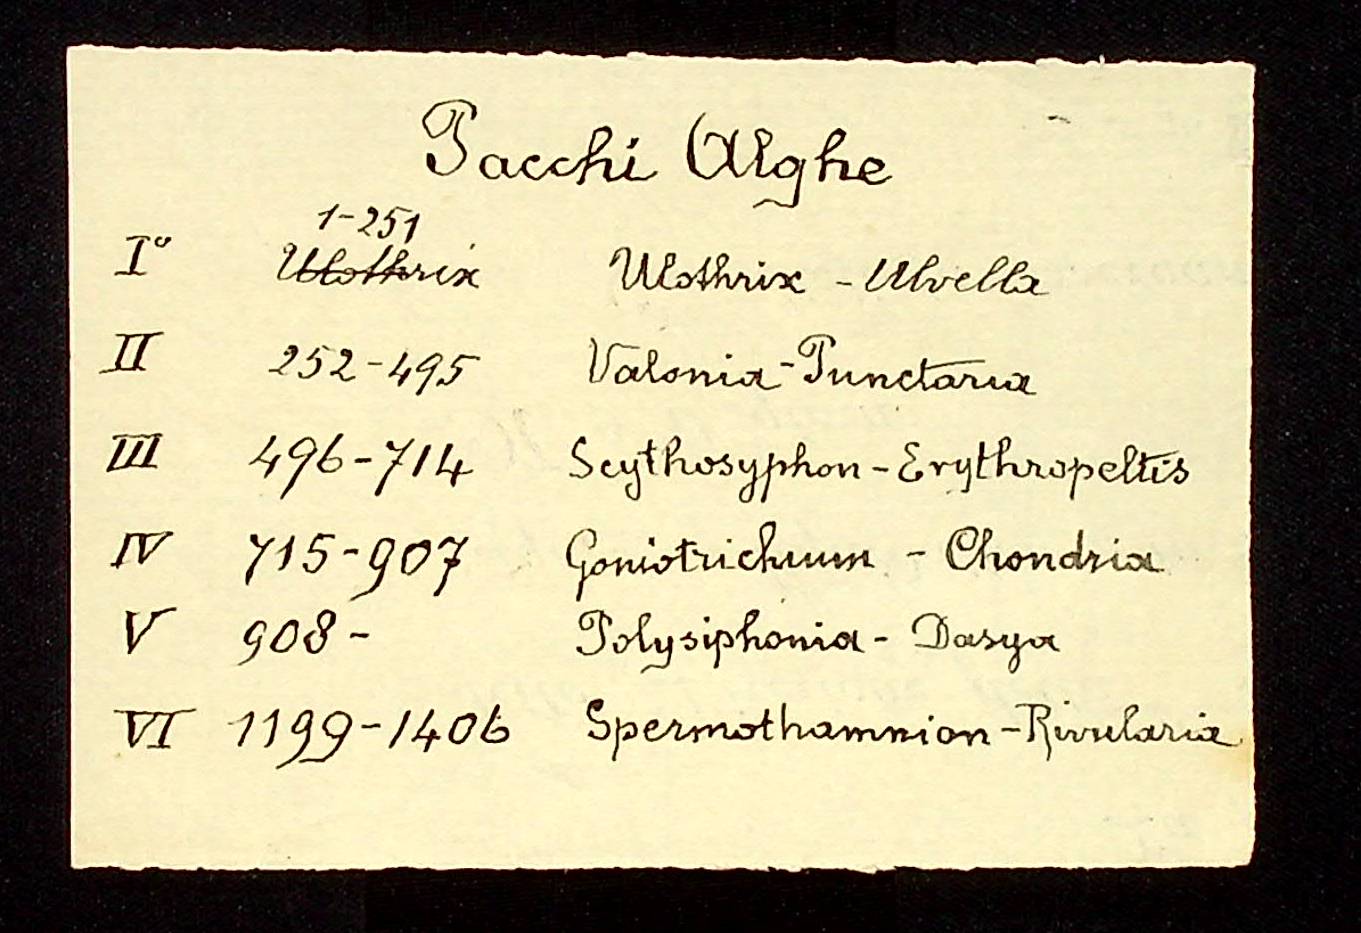 Pacchi Alghe
1-251
I° Ulothrix Ulothrix - Ulvella
II 252-495 Valonia-Punctaria
III 496-714 Scythosyphon-Erythropeltis
IV 715-907 Goniotrichum - Chondria
V 908- Polysiphonia- Dasya
VI 1199-1406 Spermothamnion-Rivularia